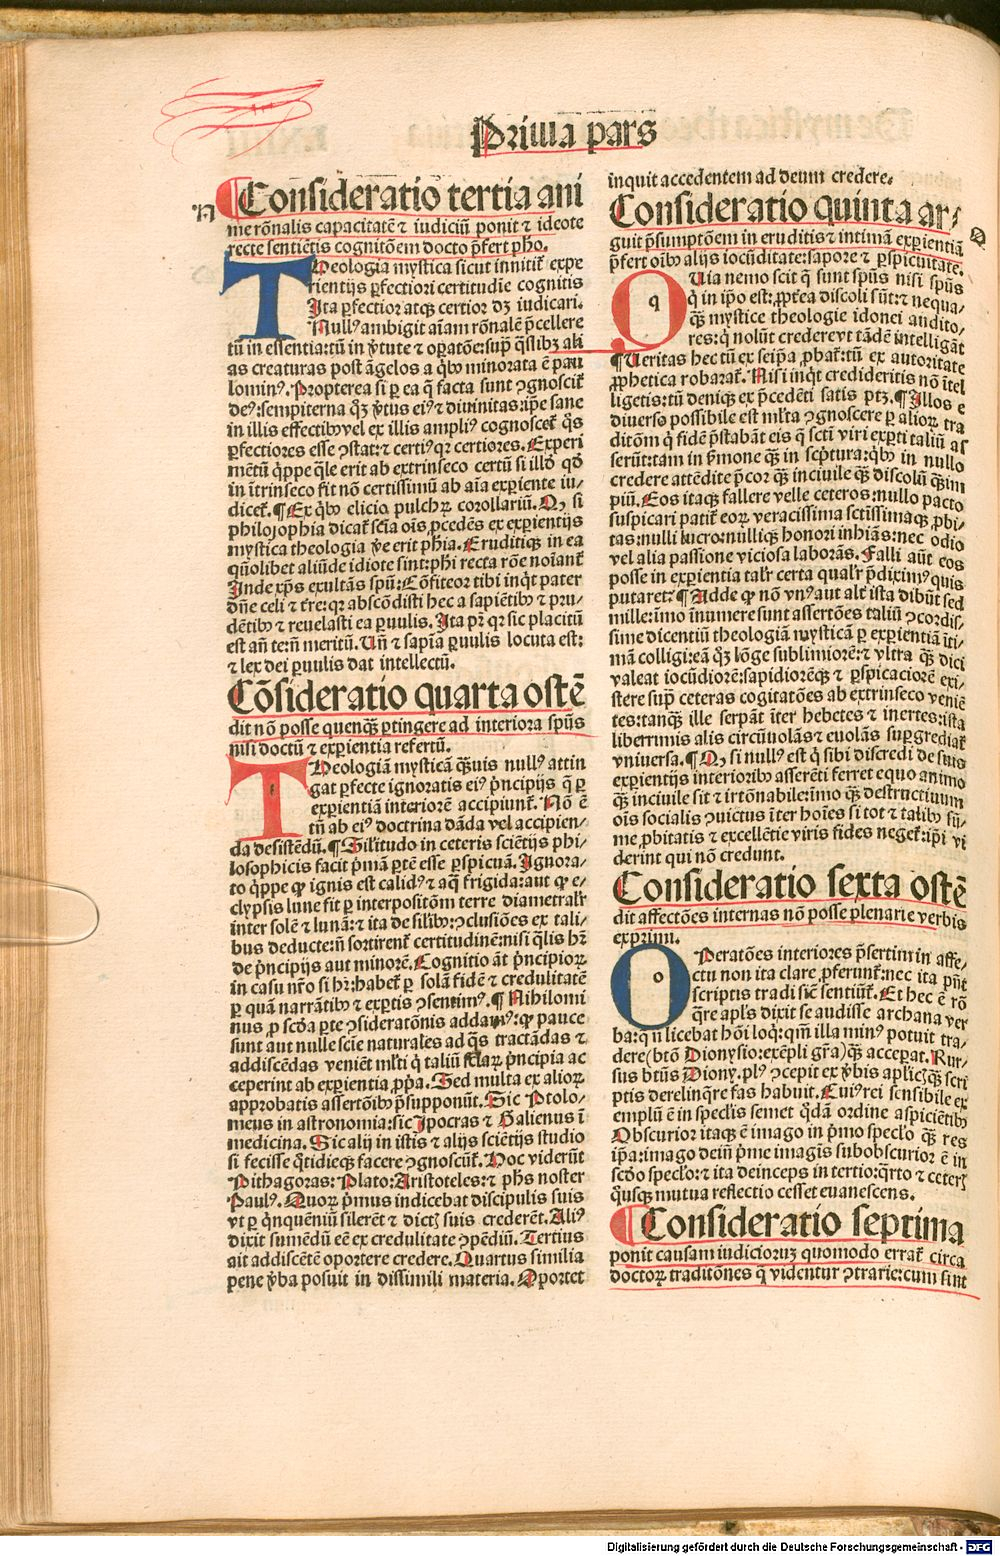 Prima pars
N
¶ Consideratio tertia ani
me rōnalis capacitatē ⁊ iudiciū ponit ⁊ ideote
recte sentiētis cognitōem docto p̄fert pho.
THeologia mystica sicut innitit᷑ expe
rientijs ꝑfectiori certitudīe cognitis
Ita ꝑfectior atqꝫ certior dꝫ iudicari.
Nullꝰ ambigit aīam rōnalē p̄cellere
tū in essentia: tū in ꝟtute ⁊ oꝑatōe: suꝑ q̄slibꝫ ali
as creaturas post āgelos a qbꝰ minorata ē pau
lominꝰ. Propterea si ꝑ ea q̄ facta sunt ꝯgnoscit᷑
deꝰ: sempiterna qꝫ ꝟtus eiꝰ ⁊ diuinitas: ip̄e sane
in illis effectibꝰ vel ex illis ampliꝰ cognoscet᷑ q̄s
ꝑfectiores esse ꝯstat: ⁊ certiꝰ qꝛ certiores. Experi
mētū qͥppe q̄le erit ab extrinseco certū si illd qd̄
in ītrinseco fit nō certissimū ab aīa exꝑiente iu-
dicet᷑. ¶ Ex qbꝰ elicio pulchꝝ corollariū. Qꝫ si
philosophia dicat᷑ scīa oīs ꝓcedēs ex exꝑientijs
mystica theologia ꝟe erit phīa. Eruditiqꝫ in ea
qn̄olibet aliūde idiote sint: phi recta rōe noīant᷑
Inde xp̄s exultās spū: Cōfiteor tibi inqͥt pater
dn̄e celi ⁊ t̄re: qꝛ abscōdisti hec a sapiētibꝰ ⁊ pru-
dētibꝰ ⁊ reuelasti ea ꝑuulis. Ita pr̄ qꝛ sic placitū
est añ te: ñ meritū. Uñ ⁊ sapīa ꝑuulis locuta est:
⁊ lex dei ꝑuulis dat intellectū.
Cōsideratio quarta ostē
dit nō posse quenqꝫ ꝑtingere ad interiora spūs
nisi doctū ⁊ exꝑientia refertū.
THeologiā mysticā q̄ꝫuis nullꝰ attin
gat ꝑfecte ignoratis eiꝰ pͥncipijs q̄ ꝑ
exꝑientiā interiorē accipiunt᷑. Nō ē
tn̄ ab eiꝰ doctrina dāda vel accipien-
da desistēdū. ¶ Silitudo in ceteris sciētijs phi-
losophicis facit pͥmā ꝑtē esse ꝑspicuā. Ignora-
to qͥppe ꝙ ignis est calidꝰ ⁊ aq̄ frigida: aut ꝙ e-
clypsis lune fit ꝑ interpositōm terre diametralr̄
inter solē ⁊ lunā: ⁊ ita de silibꝰ: ꝯclusiōes ex tali-
bus deducte: ñ sortirent᷑ certitudinē: nisi q̄lis hꝫ
de pͥncipijs aut minorē. Cognitio āt pͥncipioꝝ
in casu nr̄o si hꝫ: habet᷑ ꝑ solā fidē ⁊ credulitatē
ꝑ quā narrātibꝰ ⁊ exꝑtis ꝯsentimꝰ. ¶ Nihilomi
nus ꝓ scd̄a ꝑte ꝯsideratōnis addamꝰ: ꝙ pauce
sunt aut nulle scīe naturales ad q̄s tractādas ⁊
addiscēdas veniēt ml̄ti qͥ taliū claꝝ pͥncipia ac
ceperint ab exꝑientia ꝓpͥa. Sed multa ex alioꝝ
approbatis assertōibꝰ p̄supponūt. Sic Ptolo-
meus in astronomia: sic Ipocras ⁊ Galienus ī
medicina. Sic alij in istis ⁊ alijs sciētijs studio
si fecisse qͦtidieqꝫ facere ꝯgnoscūt᷑. Hoc viderūt
Pithagoras: Plato: Aristoteles: ⁊ phs noster
Paulꝰ. Quoꝝ pͥmus indicebat discipulis suis
vt ꝑ qͥnquēniū silerēt ⁊ dictꝭ suis crederēt. Aliꝰ
dixit sumēdū eē ex credulitate ꝯpēdiū. Tertius
ait addiscētē oportere credere. Quartus similia
pene ꝟba posuit in dissimili materia. Oportet
inquit accedentem ad deum credere.
Consideratio quinta ar-
Q
guit p̄sumptōem in eruditis ⁊ intimā exꝑientiā
p̄fert oībꝰ alijs iocūditate: sapore ⁊ ꝑspicuitate.
QUia nemo scit q̄ sunt spūs nisi spūs
qͥ in ip̄o est: ꝓpt̄ea discoli sūt: ⁊ nequa-
q̄ꝫ mystice theologie idonei audito-
res: qͥ nolūt credere vt tādē intelligāt
¶ Ueritas hec tū ex seip̄a ꝓbat᷑: tū ex autoritate
ꝓphetica roborat᷑. Nisi inqͥt credideritis nō ītel
ligetis: tū deniqꝫ ex p̄cedēti satis ptꝫ. ¶ Illos e
diuerso possibile est ml̄ta ꝯgnoscere ꝑ alioꝝ tra
ditōm qͥ fidē p̄stabāt eis q̄ sctī viri exꝑti taliū as
serūt: tam in ẜmone q̄ꝫ in scptura: qbꝰ in nullo
credere attēdite p̄cor q̄ꝫ inciuile q̄ꝫ discolū q̄ꝫ im
piū. Eos itaqꝫ fallere velle ceteros: nullo pacto
suspicari patit᷑ eoꝝ veracissima sctīssimaqꝫ ꝓbi-
tas: nulli lucro: nulliqꝫ honori inhiās: nec odio
vel alia passione viciosa laborās. Falli aūt eos
posse in exꝑientia talr̄ certa qualr̄ p̄diximꝰ quis
putaret? ¶ Adde ꝙ nō vnꝰ aut alt̄ ista dibūt sed
mille: īmo īnumere sunt assertōes taliū ꝯcordis-
sime dicentiū theologiā mysticā ꝑ exꝑientiā īti-
mā colligi: eā qꝫ lōge sublimiorē: ⁊ vltra q̄ꝫ dici
valeat iocūdiorē: sapidiorēqꝫ ⁊ ꝑspicaciorē exi-
stere suꝑ ceteras cogitatōes ab extrinseco veniē
tes: tanqꝫ ille serpāt īter hebetes ⁊ inertes: ista
liberrimis alis circūuolās ⁊ euolās suꝑgrediat᷑
vniuersa. ¶ Qꝫ si nullꝰ est qͥ sibi discredi de suis
exꝑientijs interioribꝰ asserēti ferret equo animo
q̄ꝫ inciuile sit ⁊ irrōnabile: īmo q̄ꝫ destructiuum
oīs socialis ꝯuictus īter hoīes si tot ⁊ talibꝰ sū-
me ꝓbitatis ⁊ excellētie viris fides neget᷑: ip̄i vi
derint qui nō credunt.
Consideratio sexta ostē
dit affectōes internas nō posse plenarie verbis
exprimi.
OPeratōes interiores p̄sertim in affe-
ctu non ita clare ꝓferunt᷑: nec ita pn̄t
scriptis tradi sic̄ sentiūt᷑. Et hec ē rō
q̄re apl̄s dixit se audisse archana ver
ba: q̄ ñ licebat hōi loqͥ: qm̄ illa minꝰ potuit tra-
dere (btō Dionysio: exēpli gr̄a) q̄ꝫ acceꝑat. Rur-
sus btūs Diony. plꝰ ꝯcepit ex ꝟbis apl̄icꝭ q̄ꝫ scri
ptis derelinq̄re fas habuit. Cuiꝰ rei sensibile ex
emplū ē in specl̄is semet qͦdā ordine aspiciētibꝰ
Obscurior itaqꝫ ē imago in pͥmo specl̄o q̄ꝫ res
ip̄a: imago dein̄ pͥme imagīs subobscurior ē in
scd̄o specl̄o: ⁊ ita deinceps in tertio: qͣrto ⁊ ceterꝭ
qͦusqꝫ mutua reflectio cesset euanescens.
¶ Consideratio septima
ponit causam iudicioruꝫ quomodo errat᷑ circa
doctoꝝ traditōnes q̄ videntur ꝯtrarie: cum sint
Digitalisierung gefördert durch die Deutsche Forschungsgemeinschaft - DFG